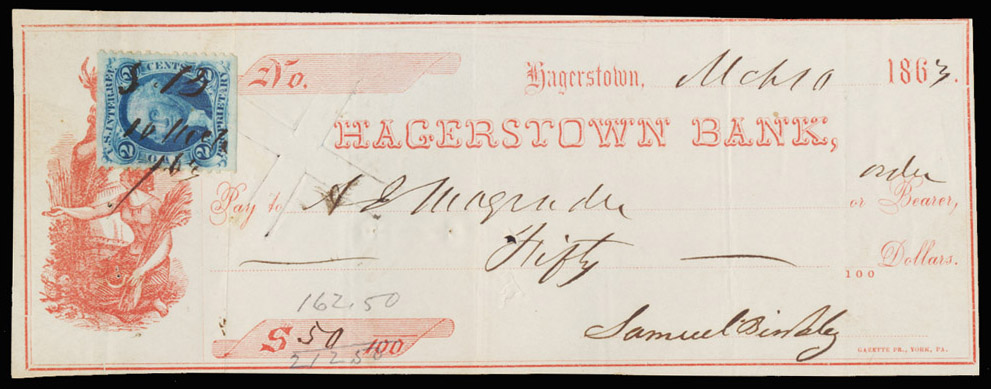 No. Hagerstown, Mch 10 1863.
HAGERSTOWN BANK,
order
Pay to A E Magruder or Bearer,
Fifty Dollars.
100
162.50
$ 50 100
212 50
Samuel
GAZETTE PR., YORK, PA.
2 CENTS 2
U.S. INTER. REV.
S. B
10 March
/63